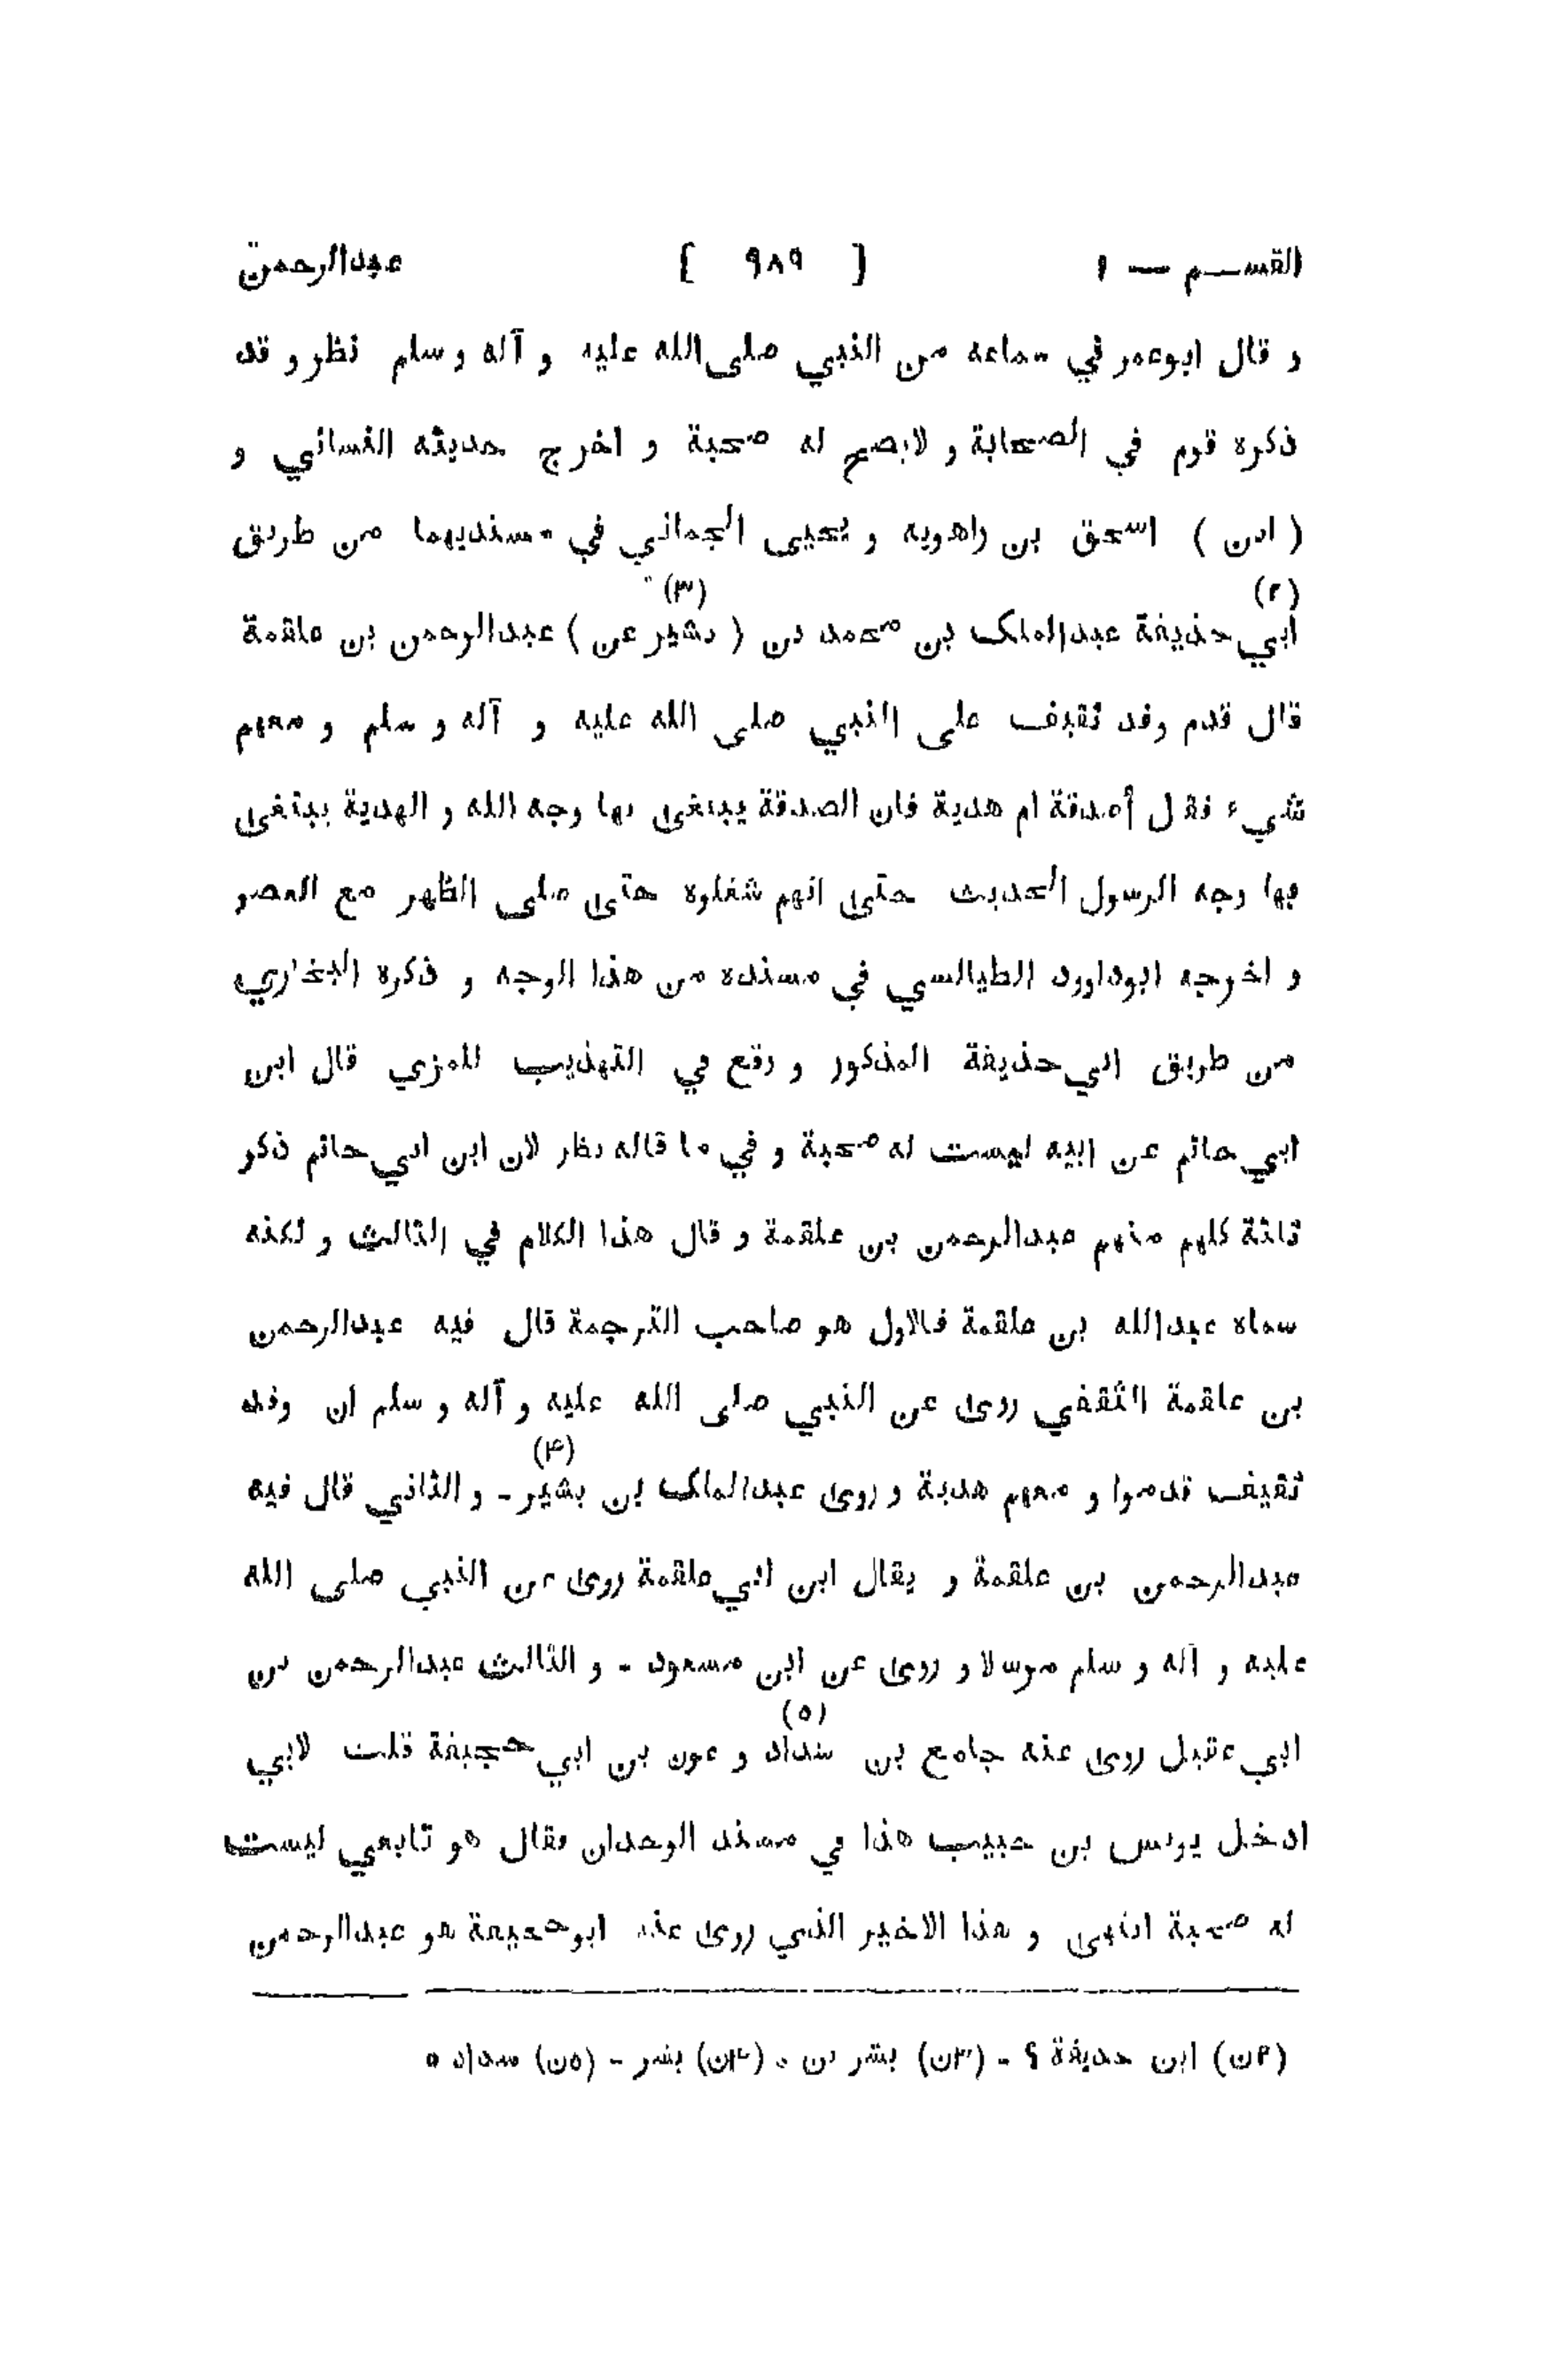 القسم — ١ [ ٩٨٩ ] عبدالرحمن
و قال ابوعمر في سماعه من النبي صلى الله عليه و آله و سلم نظر و قد
ذكره قوم في الصحابة و لايصح له صحبة و اخرج حديثه النسائي و
( ابن ) اسحق بن راهويه و يحيى الحماني في مسنديهما من طريق
(٢) (٣)
أبي حذيفة عبدالملك بن محمد بن ( بشير عن ) عبدالرحمن بن علقمة
قال قدم وفد ثقيف على النبي صلى الله عليه و آله و سلم و معهم
شيء فقال أصدقة ام هدية فان الصدقة يبتغى بها وجه الله و الهدية يبتغى
بها وجه الرسول الحديث حتى انهم شغلوه حتى صلى الظهر مع العصر
و اخرجه ابوداوود الطيالسي في مسنده من هذا الوجه و ذكره البخاري
من طريق ابي حذيفة المذكور و وقع في التهذيب للمزي قال ابن
ابي حاتم عن ابيه ليست له صحبة و في ما قاله نظر لان ابن ابي حاتم ذكر
ثلثة كلهم منهم عبدالرحمن بن علقمة و قال هذا الكلام في الثالث و لكنه
سماه عبدالله بن علقمة فالاول هو صاحب الترجمة قال فيه عبدالرحمن
بن علقمة الثقفي روى عن النبي صلى الله عليه و آله و سلم ان وفد
(۴)
ثقيف قدموا و معهم هدية و روى عبدالملك بن بشير - و الثاني قال فيه
عبدالرحمن بن علقمة و يقال ابن ابي علقمة روى عن النبي صلى الله
عليه و آله و سلم مرسلا و روى عن ابن مسعود - و الثالث عبدالرحمن بن
(٥)
ابي عقيل روى عنه جامع بن شداد و عون بن ابي حجيفة قلت لابي
ادخل يونس بن حبيب هذا في مسند الوحدان فقال هو تابعي ليست
له صحبة انتهى و هذا الاخير الذي روى عنه ابوحجيفة هو عبدالرحمن
(٢ن) ابن حذيفة ؟ - (٣ن) بشر بن ٠ (۴ن) بشر - (٥ن) سداد ٠